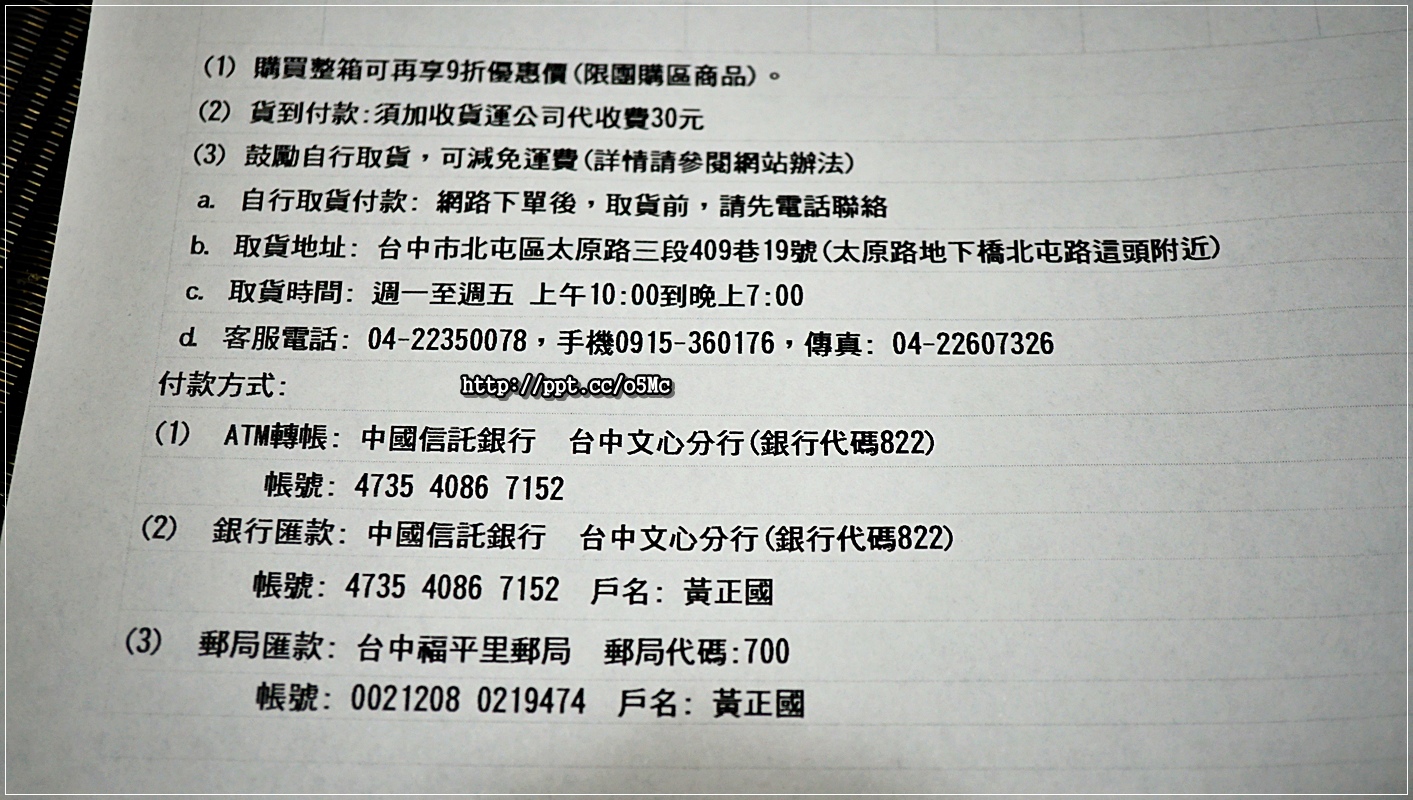 (1) 購買整箱可再享9折優惠價(限團購區商品)。
(2) 貨到付款:須加收貨運公司代收費30元
(3) 鼓勵自行取貨，可減免運費(詳情請參閱網站辦法)
a. 自行取貨付款: 網路下單後，取貨前，請先電話聯絡
b. 取貨地址: 台中市北屯區太原路三段409巷19號(太原路地下橋北屯路這頭附近)
c. 取貨時間: 週一至週五 上午10:00到晚上7:00
d. 客服電話: 04-22350078，手機0915-360176，傳真: 04-22607326
付款方式:
http://ppt.cc/o5Mc
(1) ATM轉帳: 中國信託銀行 台中文心分行(銀行代碼822)
帳號: 4735 4086 7152
(2) 銀行匯款: 中國信託銀行 台中文心分行(銀行代碼822)
帳號: 4735 4086 7152 戶名: 黃正國
(3) 郵局匯款: 台中福平里郵局 郵局代碼:700
帳號: 0021208 0219474 戶名: 黃正國